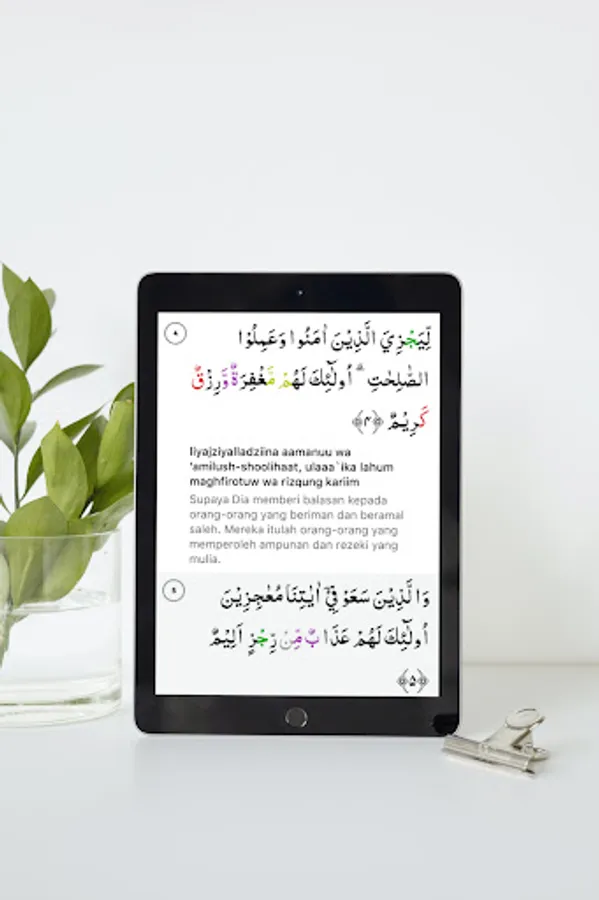 ٤
لِّيَجْزِيَ الَّذِيْنَ اٰمَنُوْا وَعَمِلُوْا
الصّٰلِحٰتِۗ اُولٰۤىِٕكَ لَهُمْ مَّغْفِرَةٌ وَّرِزْقٌ
كَرِيْمٌ ﴿٤﴾
liyajziyalladziina aamanuu wa
'amilush-shoolihaat, ulaaa`ika lahum
maghfirotuw wa rizqung kariim
Supaya Dia memberi balasan kepada
orang-orang yang beriman dan beramal
saleh. Mereka itulah orang-orang yang
memperoleh ampunan dan rezeki yang
mulia.
5
وَالَّذِيْنَ سَعَوْ فِيْٓ اٰيٰتِنَا مُعٰجِزِيْنَ
اُولٰۤىِٕكَ لَهُمْ عَذَابٌ مِّنْ رِّجْزٍ اَلِيْمٌ
﴿٥﴾